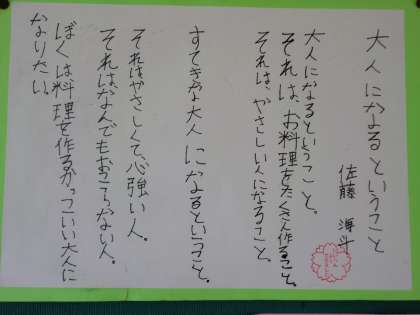 大人になるということ
佐藤 淳斗
大人になるということ。
それは、お料理をたくさん作ること。
それは、やさしい人になること。
すてきな大人になるということ。
それはやさしくて、心強い人。
それはなんでもおこらない人。
ぼくは料理を作るかっこいい大人に
なりたい。